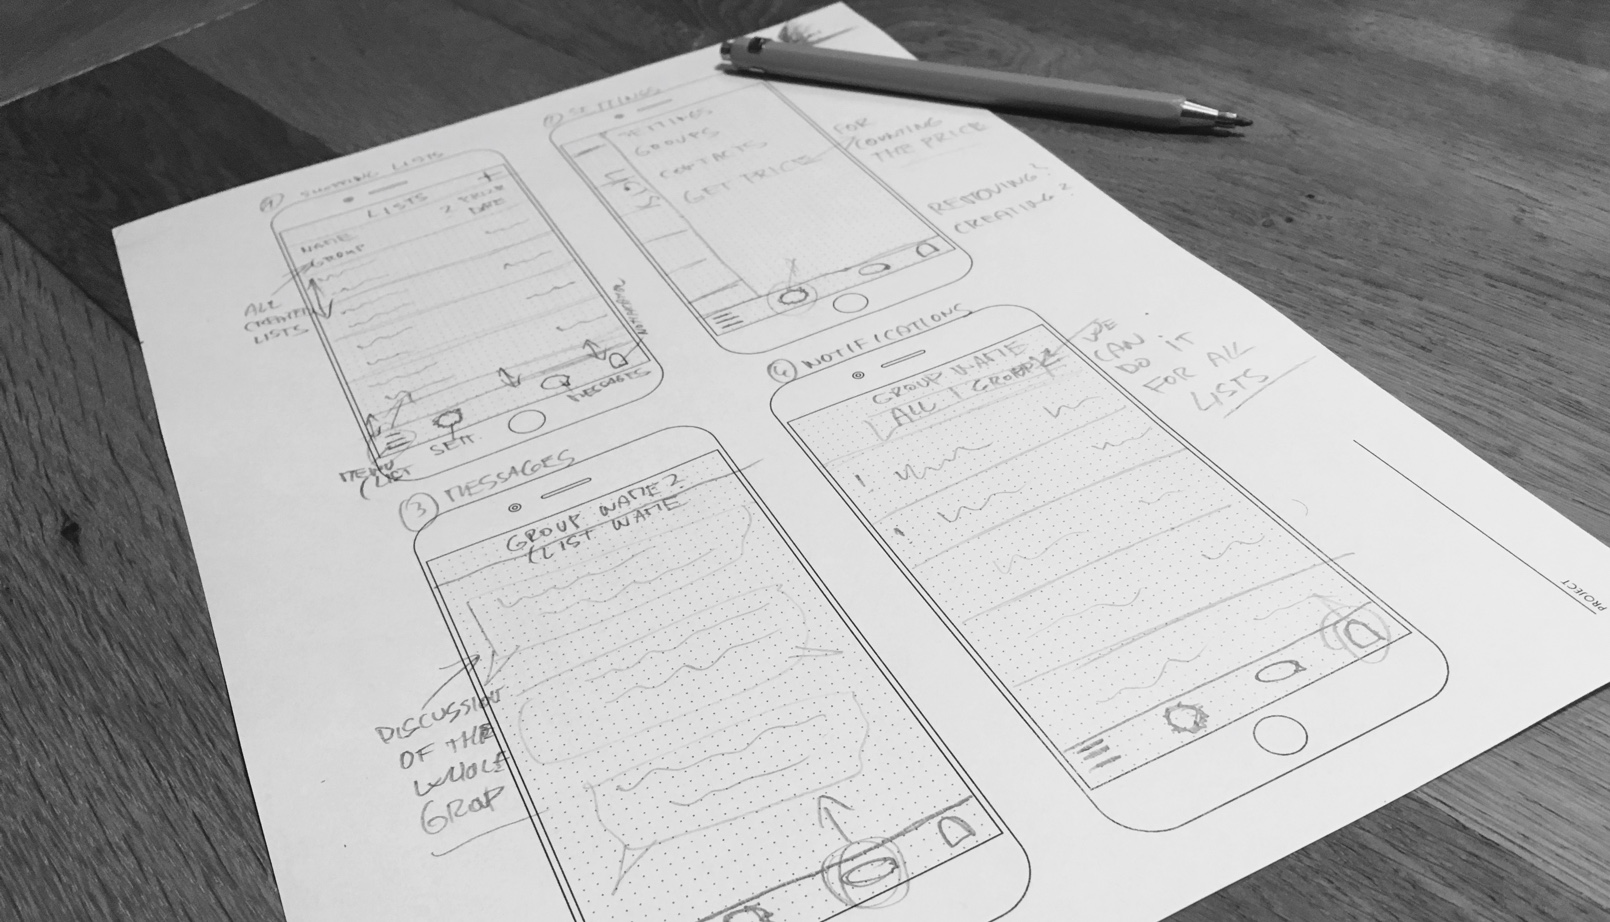 1 SHOPPING LISTS
LISTS +
NAME 2 PRIZE
GROUP DATE
ALL
CREATED
LISTS
MESSAGES
SETT
MENU
LIST
SETTINGS
SETTINGS
GROUPS
CONTACTS
GET PRICE
FOR
COUNTING
THE PRICE
REMOVING?
CREATING?
3 MESSAGES
GROUP NAME?
(LIST NAME
DISCUSSION
OF THE
WHOLE
GROP
4 NOTIFICATIONS
GROUP NAME
ALL | GROUP
!
!
WE
CAN
DO IT
FOR ALL
LISTS
PROJECT